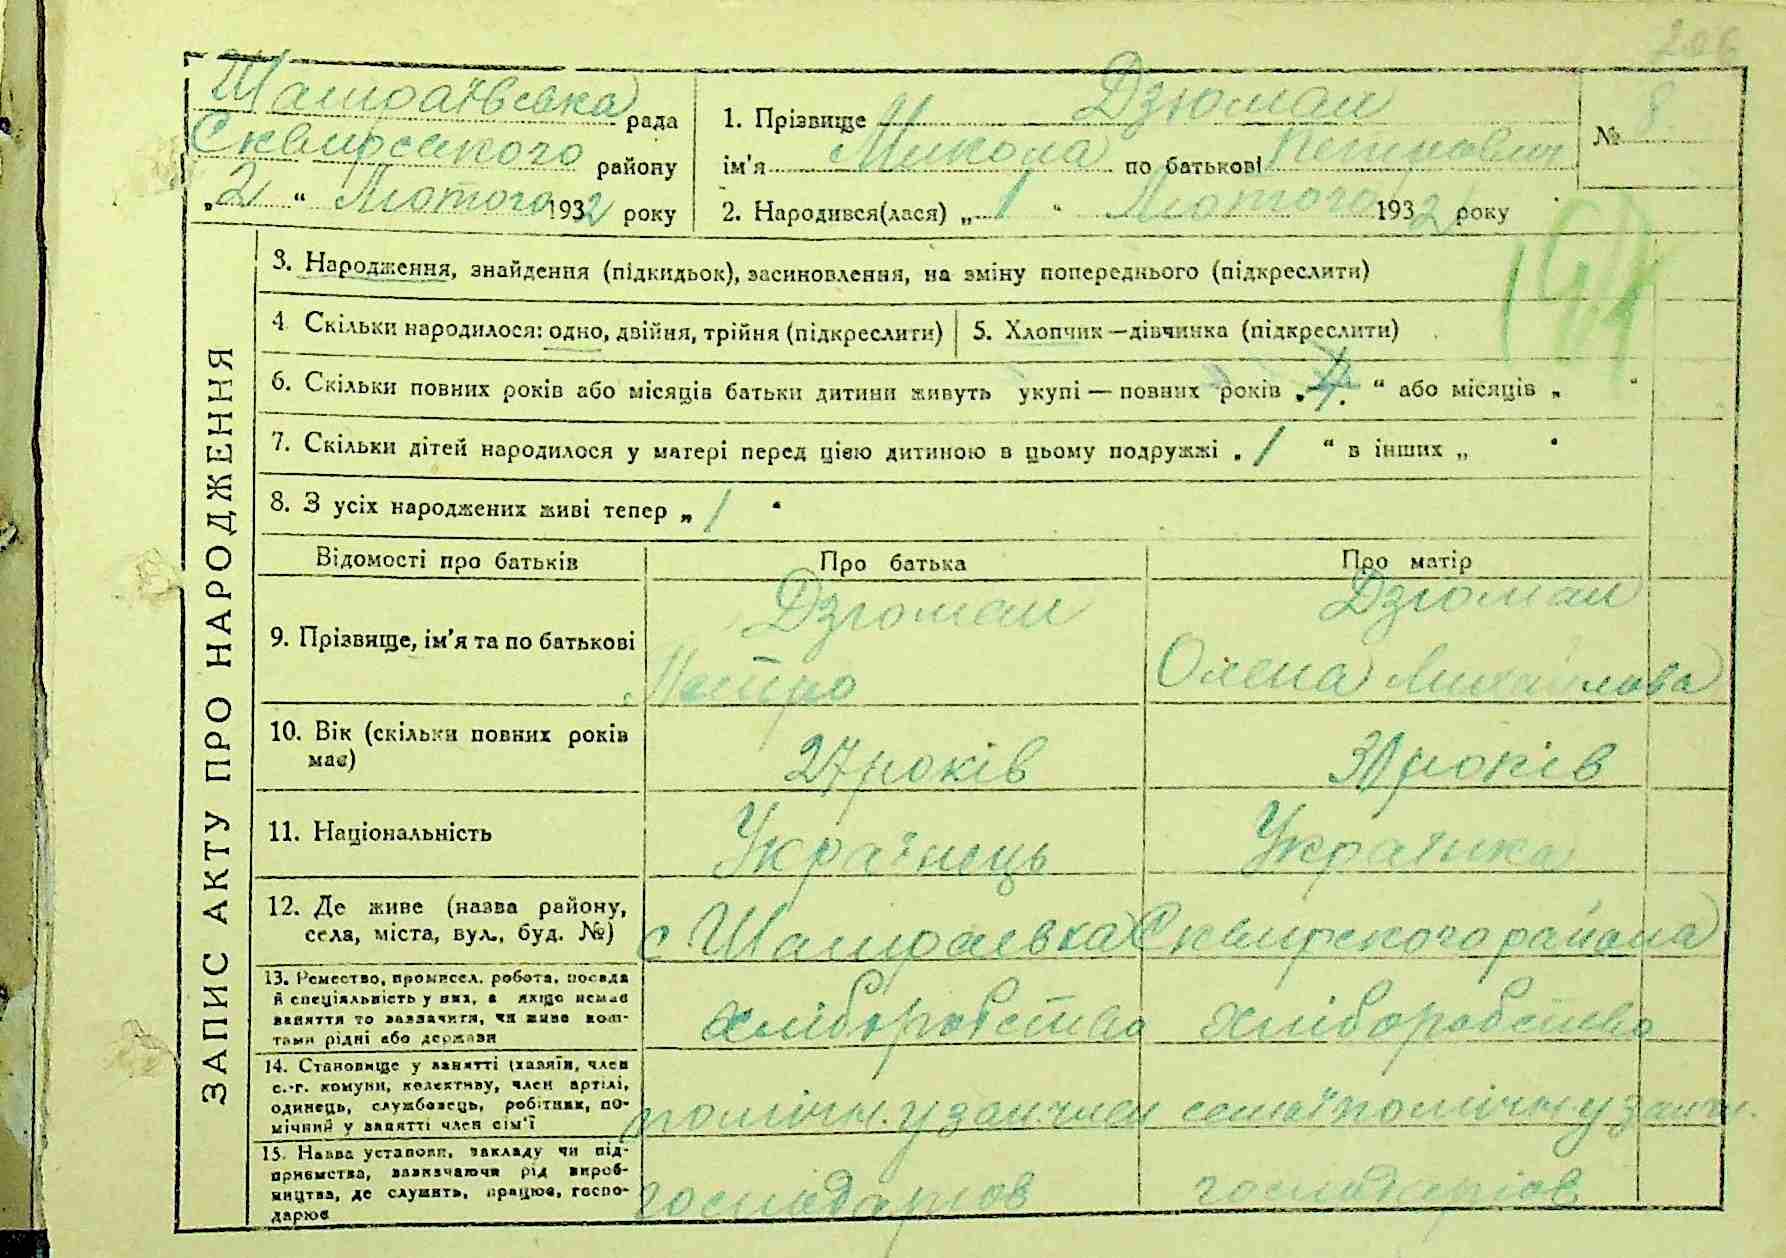 206
Шамраївська рада
Сквирського району
„2“ Лютого 1932 року
1. Прізвище Дзюман
ім'я Микола по батькові Петрович
2. Народився(лася) „1“ Лютого 1932 року
№ 8
ЗАПИС АКТУ ПРО НАРОДЖЕННЯ
3. Народження, знайдення (підкидьок), засиновлення, на зміну попереднього (підкреслити)
4. Скільки народилося: одно, двійня, трійня (підкреслити)
5. Хлопчик—дівчинка (підкреслити)
6. Скільки повних років або місяців батьки дитини живуть укупі — повних років „4“ або місяців „ “
7. Скільки дітей народилося у матері перед цією дитиною в цьому подружжі „1“ в інших „ “
8. З усіх народжених живі тепер „1“
Відомості про батьків
Про батька
Про матір
9. Прізвище, ім'я та по батькові
Дзюман
Петро
Дзюман
Олена Михайлова
10. Вік (скільки повних років
має)
27 років
30 років
11. Національність
Українець
Українка
12. Де живе (назва району,
села, міста, вул., буд. №)
с Шамраевка Сквирского района
13. Ремество, промисел, робота, посада
й спеціяльність у них, а якщо немає
заняття то зазначити, чи живе кош-
тами рідні або держави
хліборобство
хліборобство
14. Становище у занятті (хазяїн, член
с.-г. комуни, колективу, член артілі,
одинець, службовець, робітник, по-
мічний у занятті член сім'ї
помічн. у зан член семьї помічн у занят.
15. Назва установи, закладу чи під-
приємства, зазначаючи рід вироб-
ництва, де служить, працює, госпо-
дарює
господарюв
господарюв